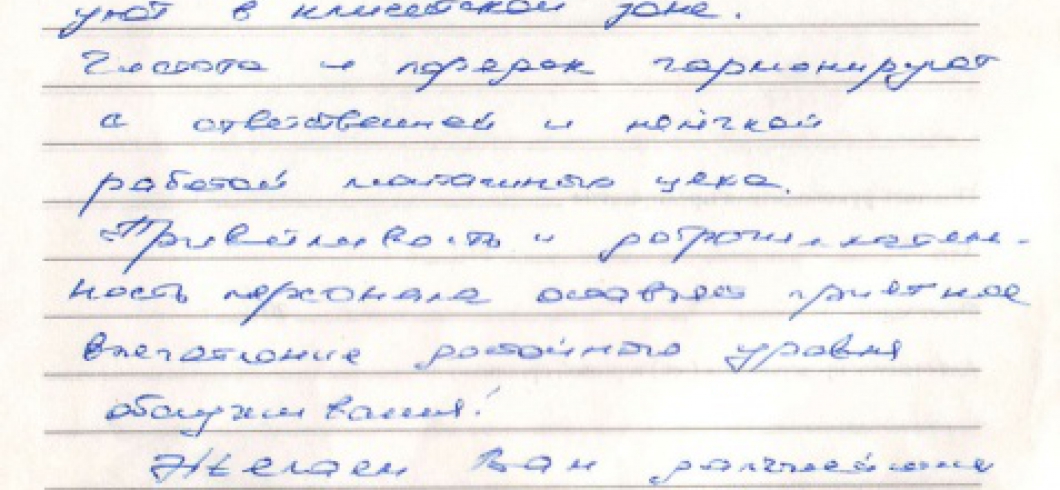 уют в клиентской зоне.
Чистота и порядок гармонируют
с ответственной и четкой
работой малярного цеха.
Приветливость и доброжелатель-
ность персонала оставляет приятное
впечатление достойного уровня
обслуживания!
Желаем Вам дальнейших